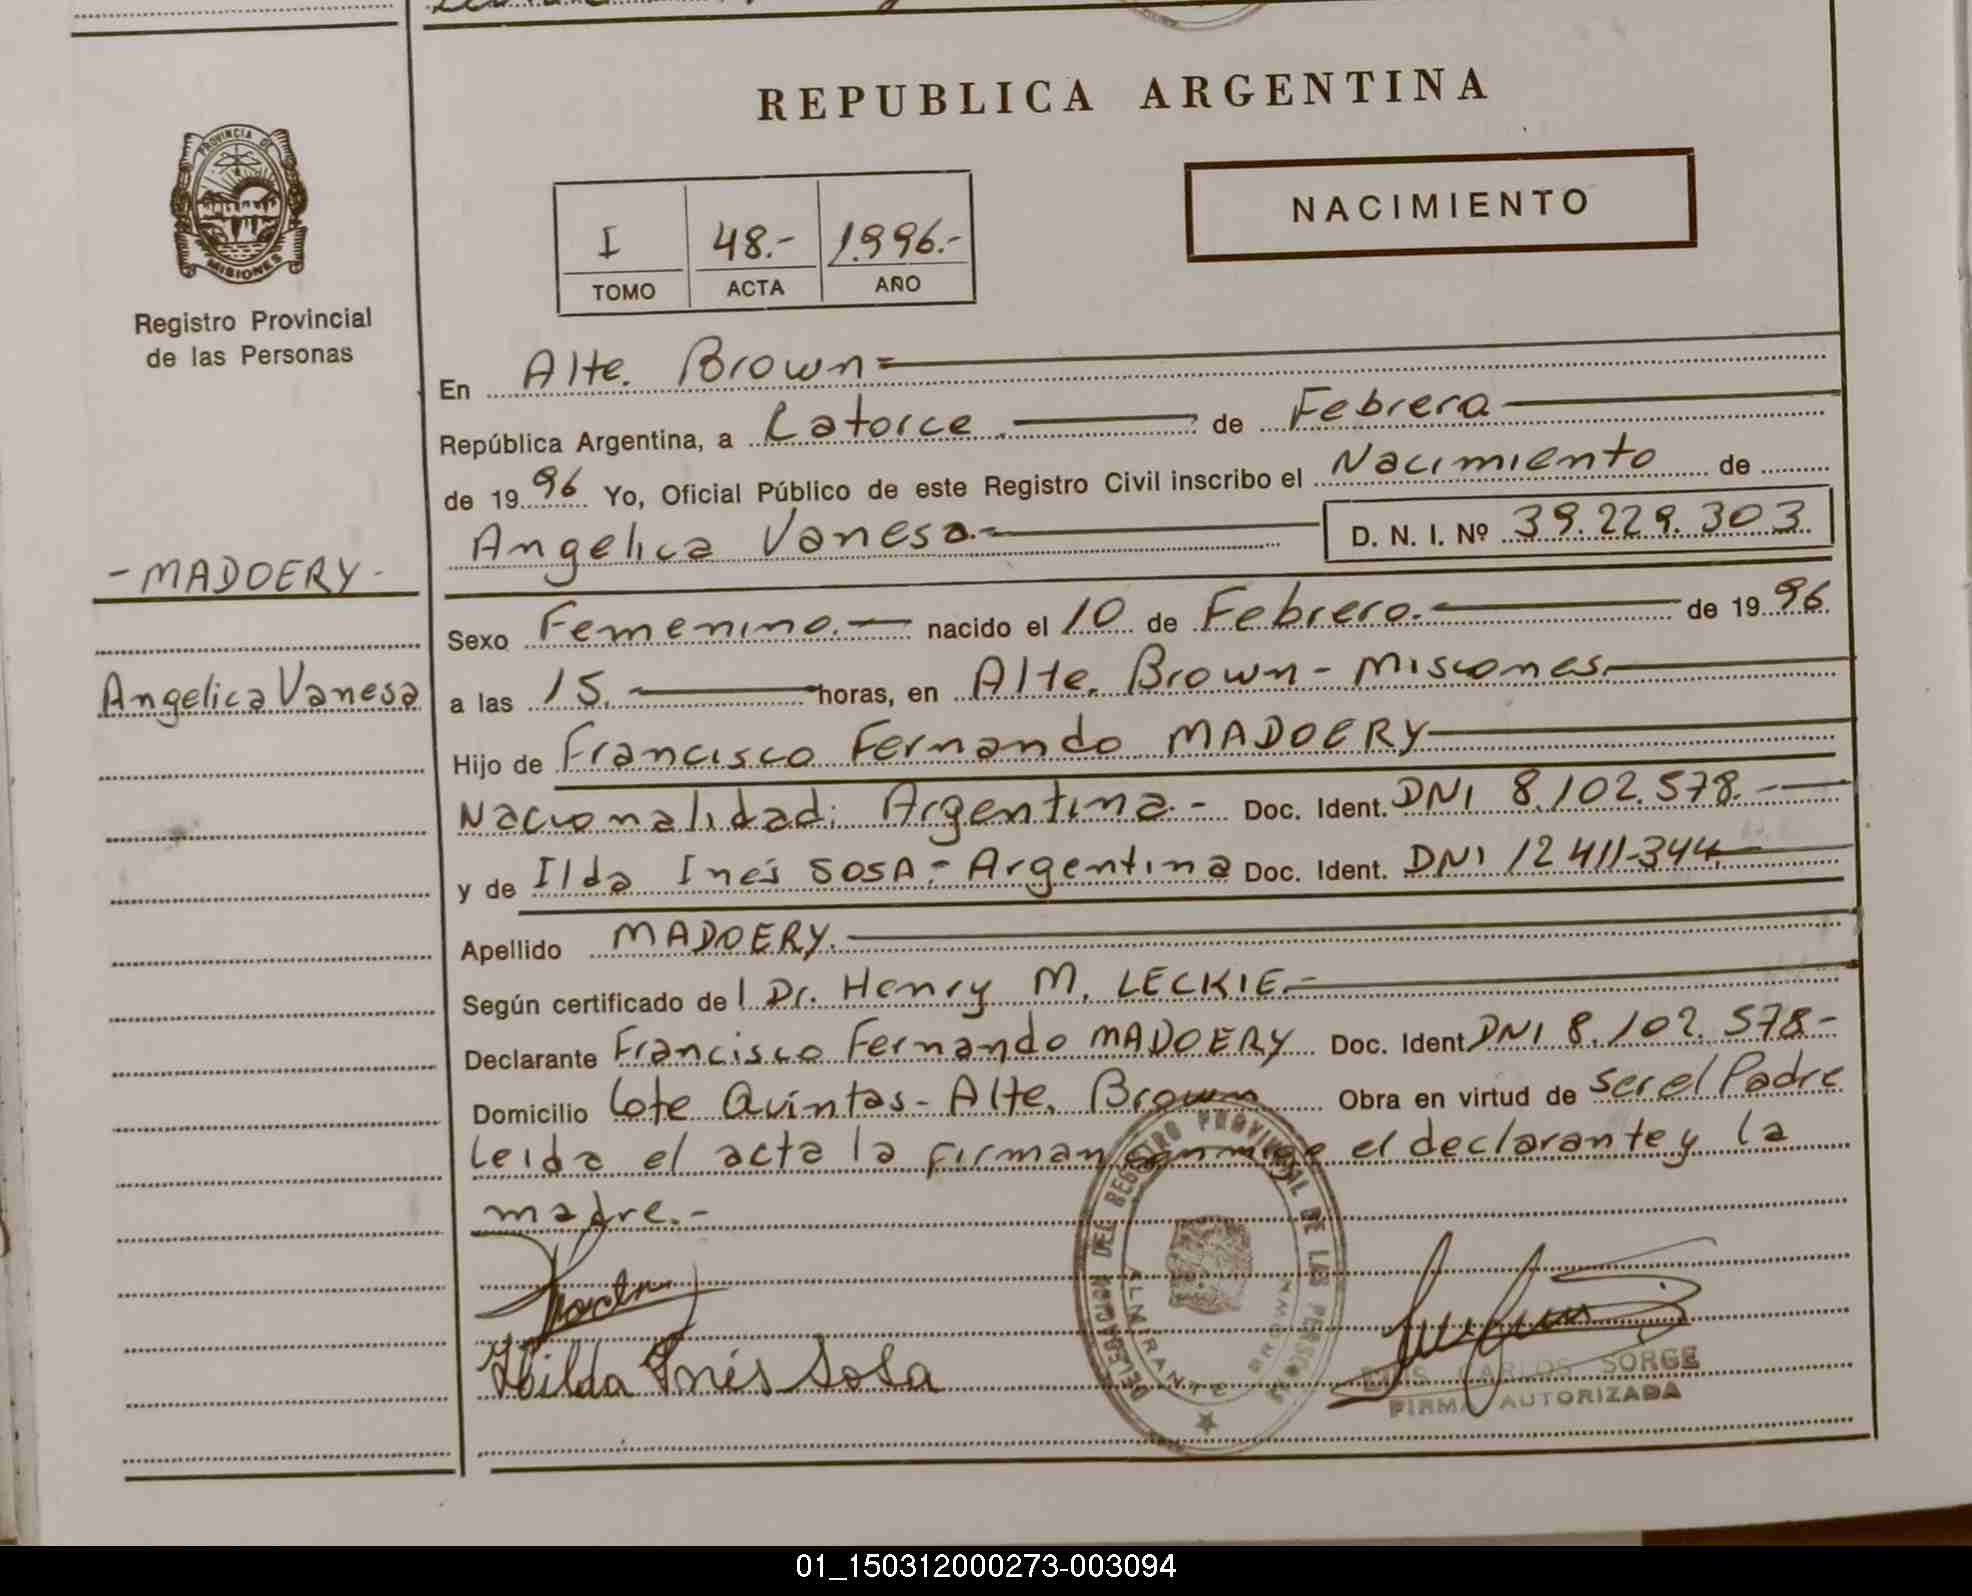 REPUBLICA ARGENTINA
PROVINCIA DE
MISIONES
Registro Provincial
de las Personas
NACIMIENTO
I 48.- 1.996.-
TOMO ACTA AÑO
- MADOERY -
Angelica Vanesa
En Alte. Brown=
República Argentina, a Catorce de Febrero
de 1996 Yo, Oficial Público de este Registro Civil inscribo el Nacimiento de
Angelica Vanesa.- D. N. I. Nº 39.229.303
Sexo Femenino.- nacido el 10 de Febrero. de 1996
a las 15. horas, en Alte. Brown - Misiones
Hijo de Francisco Fernando MADOERY
Nacionalidad: Argentina.- Doc. Ident. DNI 8.102.578.-
y de Ilda Inés SOSA.- Argentina Doc. Ident. DNI 12411344
Apellido MADOERY.
Según certificado de l Dr. Henry M. LECKIE.-
Declarante Francisco Fernando MADOERY Doc. Ident DNI 8.102.578-
Domicilio Lote Quintas - Alte. Brown Obra en virtud de ser el Padre
leida el acta la firman conmigo el declarante y la
madre.-
Hilda Inés Sosa
DELEGACION DEL REGISTRO PROVINCIAL DE LAS PERSONAS
ALMIRANTE BROWN
LUIS CARLOS SORGE
FIRMA AUTORIZADA
01_150312000273-003094